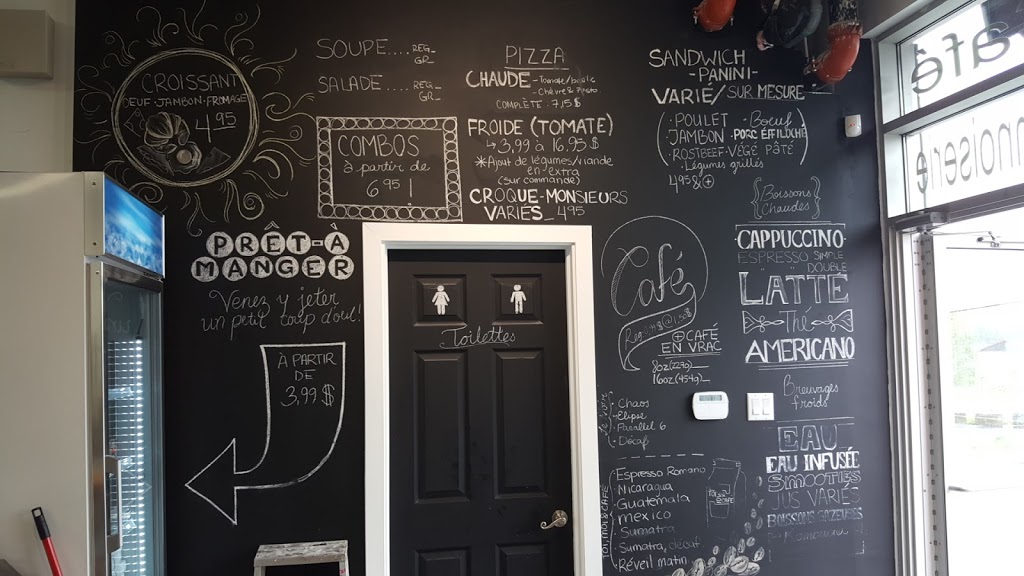 CROISSANT
OEUF·JAMBON·FROMAGE
4.95
SOUPE....REG_
GR_
SALADE....REG_
GR_
COMBOS
à partir de
6.95!
PIZZA
CHAUDE
COMPLÈTE 7,15$
FROIDE (TOMATE)
3,99 à 16.95$
*Ajout de légumes/viande
en extra
(sur commande)
CROQUE-MONSIEURS
VARIÉS 4.95
SANDWICH
-PANINI-
VARIÉ/SUR MESURE
·POULET ·Boeuf
·JAMBON ·PORC EFFILOCHÉ
·ROSTBEEF·VÉGÉ PÂTÉ
·Légumes grillés
4.95 & +
PRÊT-À
MANGER
Venez y jeter
un petit coup d'oeil!
À PARTIR
DE
3,99$
Toilettes
Café
+CAFÉ
EN VRAC
8oz(227g)_
16oz(454g)_
·Chaos
·Elipse
·Parallel 6
·Décaf
TOI, MOI & CAFÉ
·Espresso Romano
·Nicaragua
·Guatemala
·Mexico
·Sumatra
·Sumatra, décaf
·Réveil matin
Boissons
Chaudes
CAPPUCCINO
ESPRESSO SIMPLE
DOUBLE
LATTÉ
Thé
AMERICANO
Breuvages
froids
EAU
EAU INFUSÉE
SMOOTIES
JUS VARIÉS
BOISSONS GAZEUSES
Café